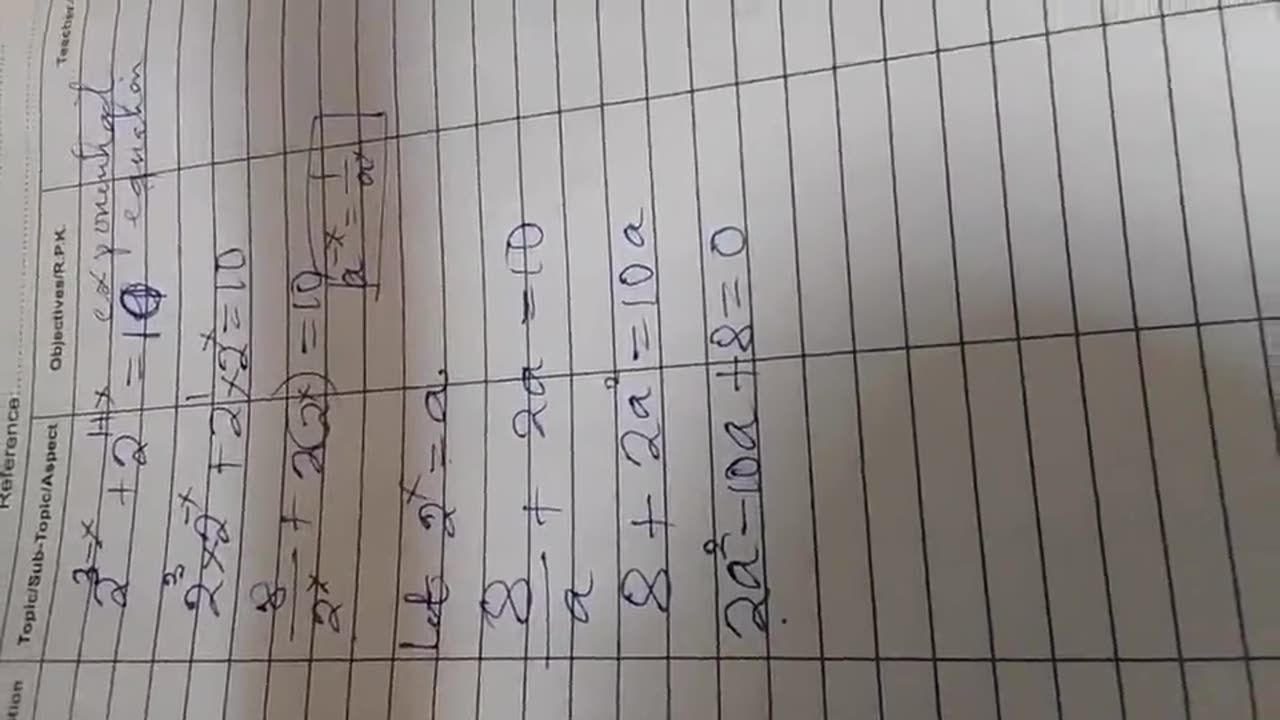 Reference:
tion Topic/Sub-Topic/Aspect Objectives/R.P.K. Teacher
2^{3-x} + 2^{1+x} = 10 exponential equation
2^3 × 2^{-x} + 2^1 × 2^x = 10
8/2^x + 2(2^x) = 10
a^{-x} = 1/a^x
Let 2^x = a
8/a + 2a = 10
8 + 2a² = 10a
2a² - 10a + 8 = 0